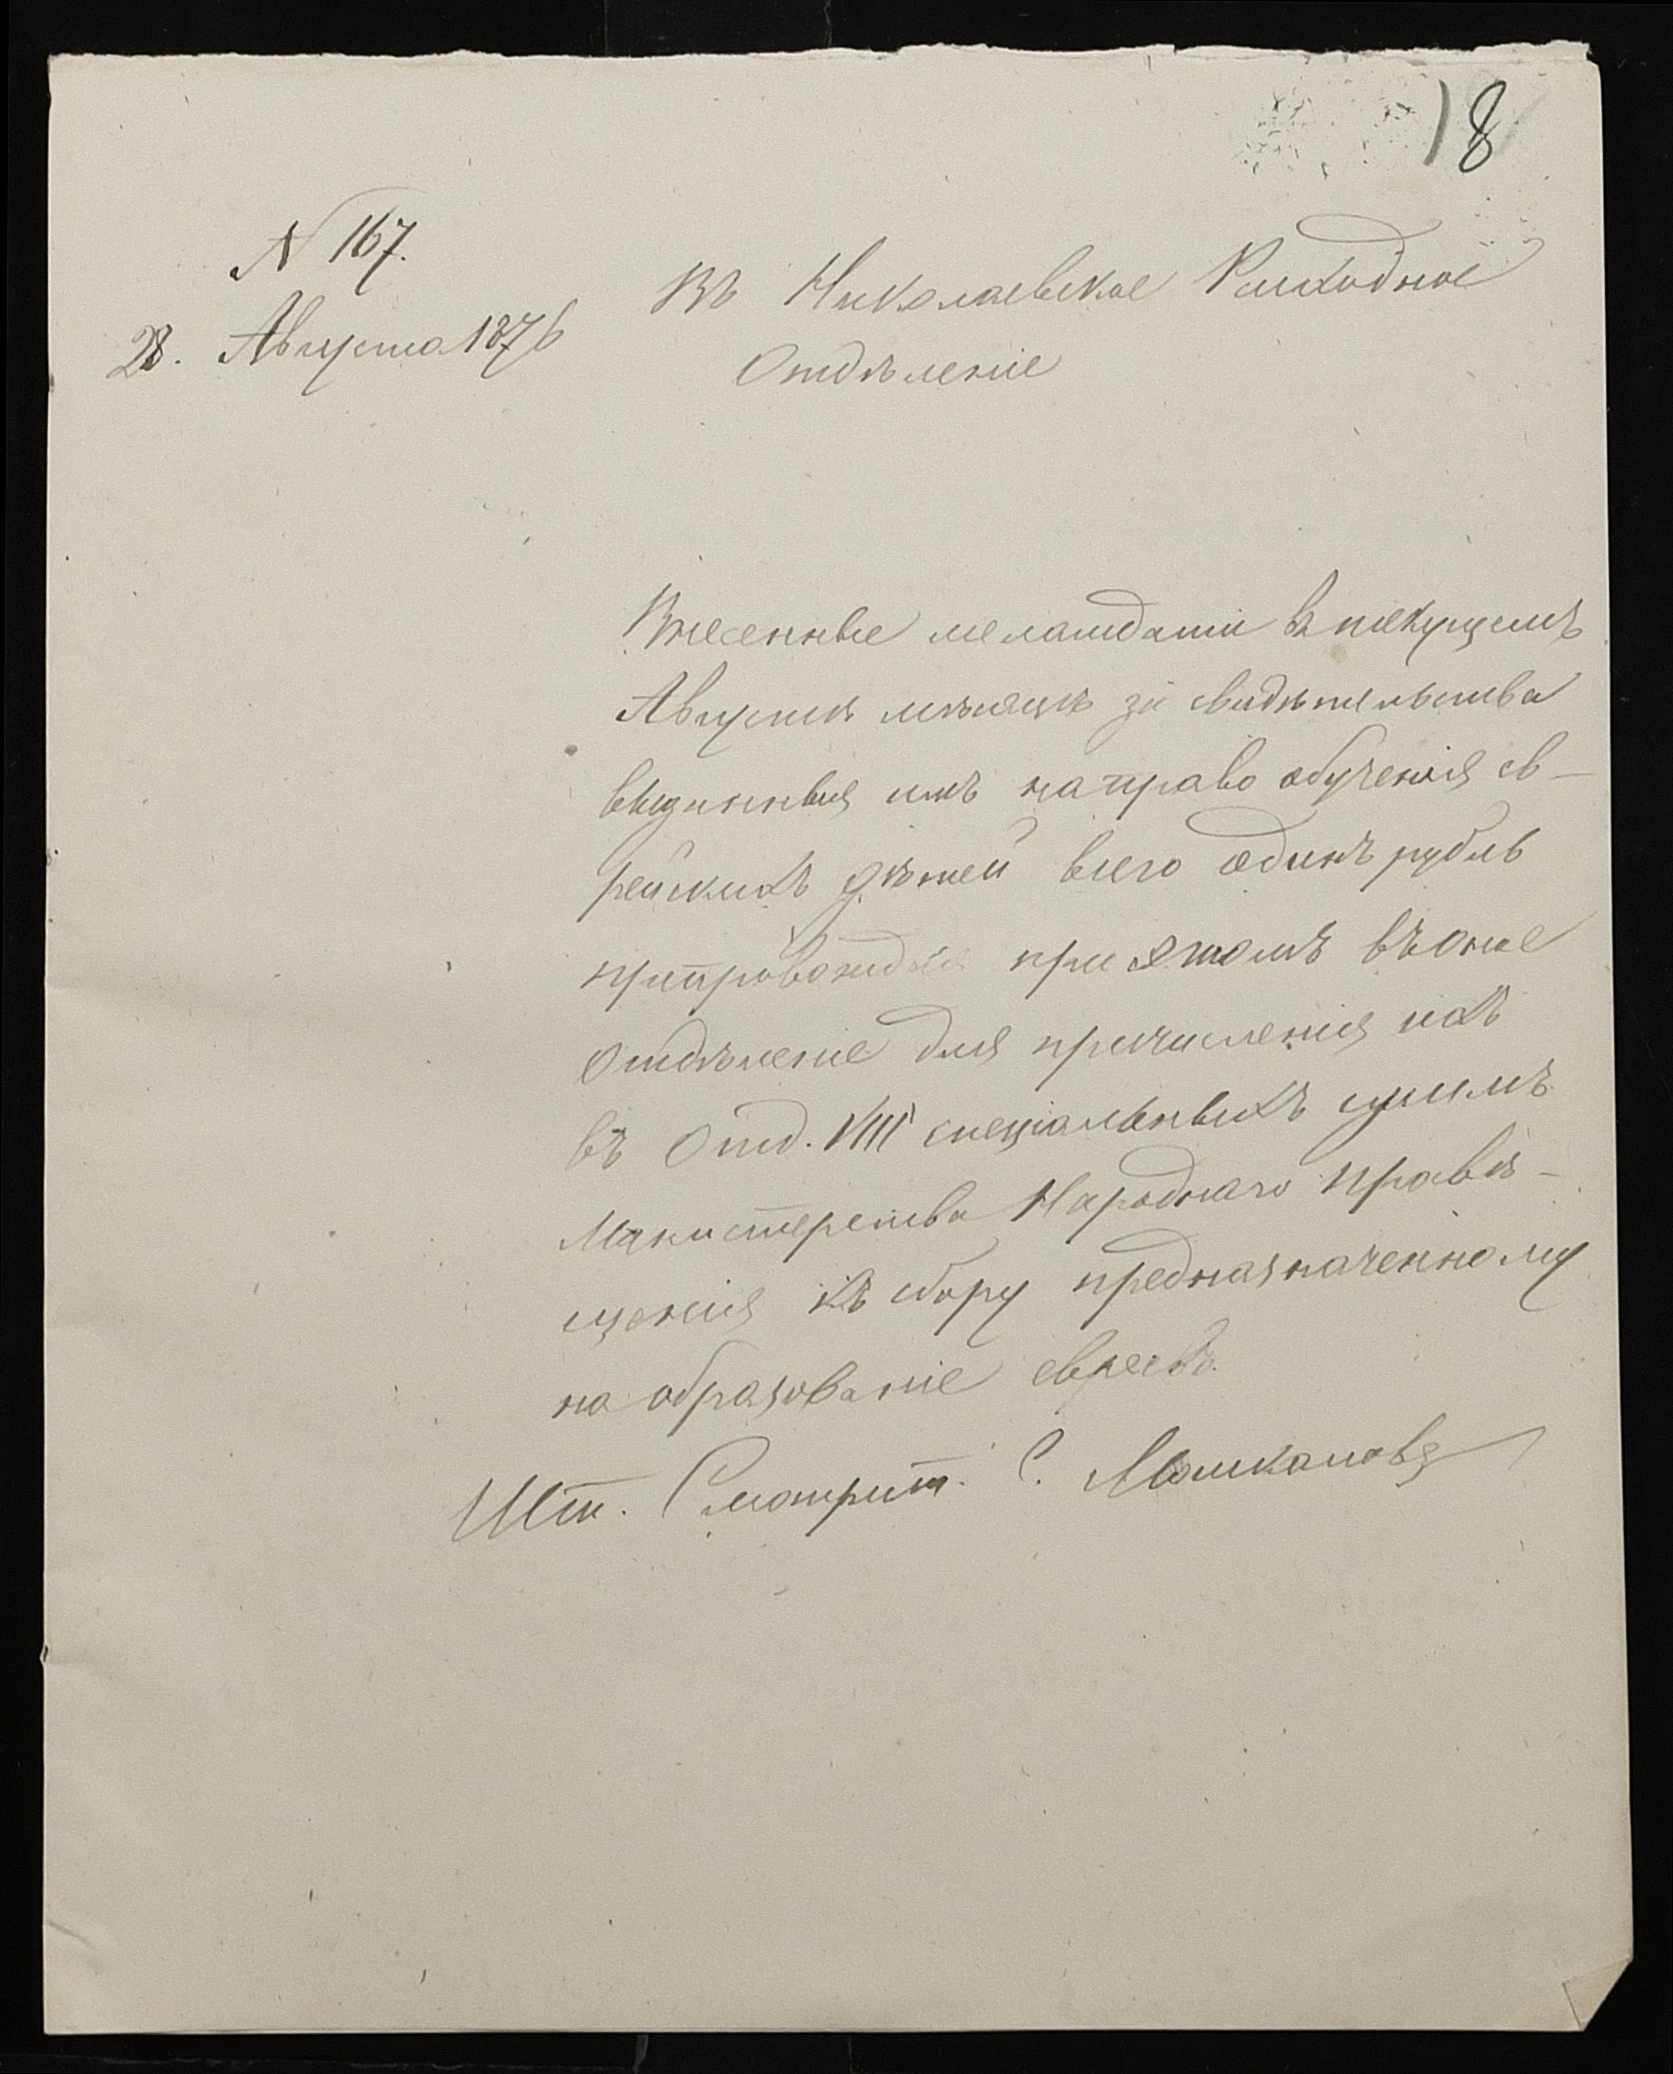 18
N 167.
28. Августа 1876
Въ Николаевское Расходное
Отдѣленіе
Внесенные меламдами въ текущемъ
Августѣ мѣсяцѣ за свидѣтельства
выданныя имъ на право обученія ев-
рейскихъ дѣтей всего одинъ рубль
препровождая при этомъ въ оное
Отдѣленіе для причисленія ихъ
въ Отд. VIII спеціальныхъ суммъ
Министерства Народнаго Просвѣ-
щенія къ сбору предназначенному
на образованіе евреевъ.
Шт. Смотрит. С.